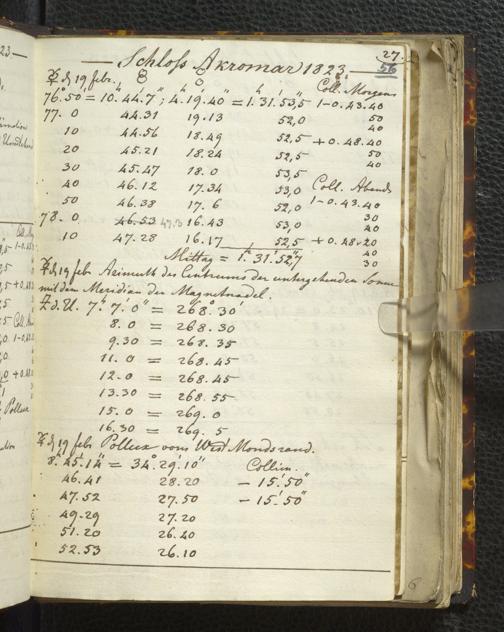 27.
56
Schloß Akromar 1823
☿ d 19 febr. Coll. Morgens
76°.50 = 10h.44'.7"; 4h.19'.40" = 1h.31'.53",5 1-0.43.40
77. 0 44.31 19.13 52,0 50
10 44.56 18.49 52,5 40
20 45.21 18.24 52,5 +0.48.40
30 45.47 18.0 53,5 50
40 46.12 17.34 53,0 40
50 46.38 17.6 52,0 Coll. Abends
78.0 46.53 47.3 16.43 53,0 1-0.43.40
10 47.28 16.17 52,5 30
40
+0.48.20
40
30
Mittag = 1h.31'.52",7
☿ d 19 febr Azimuth des Centrums der untergehenden Sonne
mit dem Meridian der Magnetnadel.
Z. d. U. 7h.7'.0" = 268°.30
8.0 = 268.30
9.30 = 268.35
11.0 = 268.45
12.0 = 268.45
13.30 = 268.55
15.0 = 269.0
16.30 = 269.5
☿ d 19 febr Pollux vom West Mondsrand.
8h.45'.14" = 34°.29'.10" Collim.
46.41 28.20 - 15'.50"
47.52 27.50 - 15'.50"
49.29 27.20
51.20 26.40
52.53 26.10
6